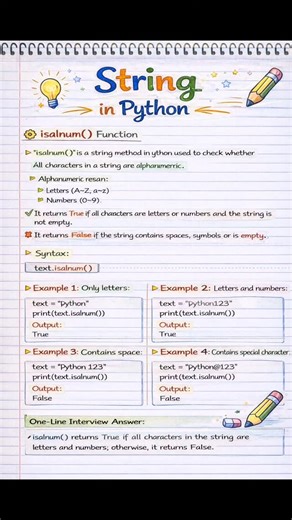 String
in Python
isalnum() Function
"isalnum()" is a string method in ython used to check whether
All characters in a string are alphanmerric.
Alphanumeric resan:
Letters (A–Z, a–z)
Numbers (0–9).
It returns True if all charcters are letters or numbers and the string is
not empty.
It returns False if the string contains spaces, symbols or is empty.
Syntax:
text.isalnum()
Example 1: Only letters:
text = "Python"
print(text.isalnum())
Output:
True
Example 2: Letters and numbers:
text = "Python123"
print(text.isalnum())
Output:
True
Example 3: Contains space:
text = "Python 123"
print(text.isalnum())
Output:
False
Example 4: Contains special character
text = "Python@123"
print(text.isalnum())
Output:
False
One-Line Interview Answer:
isalnum() returns True if all characters in the string are
letters and numbers; otherwise, it returns False.